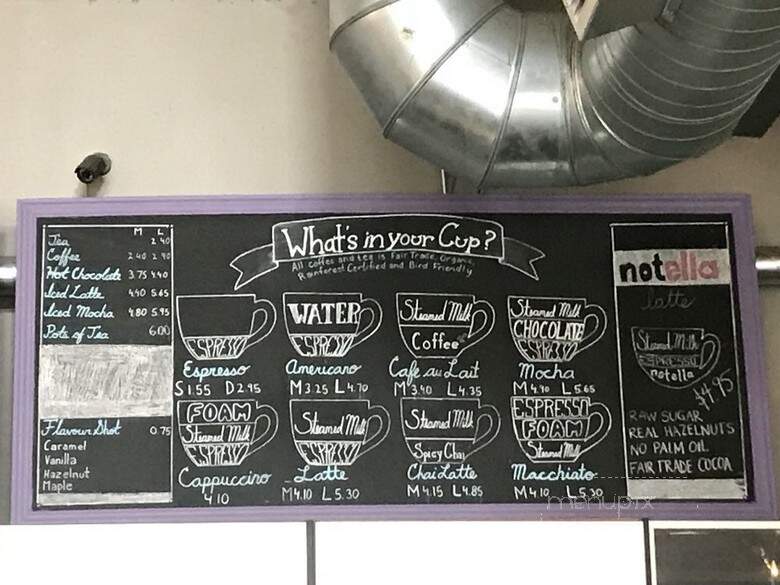 M L
Tea 2.40
Coffee 2.40 2.90
Hot Chocolate 3.75 4.40
Iced Latte 4.40 5.65
Iced Mocha 4.80 5.95
Pots of Tea 6.00
Flavour Shot 0.75
Caramel
Vanilla
Hazelnut
Maple
What's in your Cup?
All coffee and tea is Fair Trade, Organic,
Rainforest Certified and Bird Friendly
ESPRESSO
Espresso
S 1.55 D 2.95
WATER
ESPRESSO
Americano
M 3.25 L 4.70
Steamed Milk
Coffee
Cafe au Lait
M 3.40 L 4.35
Steamed Milk
CHOCOLATE
ESPRESSO
Mocha
M 4.90 L 5.65
FOAM
Steamed Milk
ESPRESSO
Cappuccino
4.10
Steamed Milk
ESPRESSO
Latte
M 4.10 L 5.30
Steamed Milk
Spicy Chai
Chai Latte
M 4.15 L 4.85
ESPRESSO
FOAM
Steamed Milk
Macchiato
M 4.10 L 5.30
notella
latte
Steamed Milk
ESPRESSO
notella
$4.95
RAW SUGAR
REAL HAZELNUTS
NO PALM OIL
FAIR TRADE COCOA
menupix